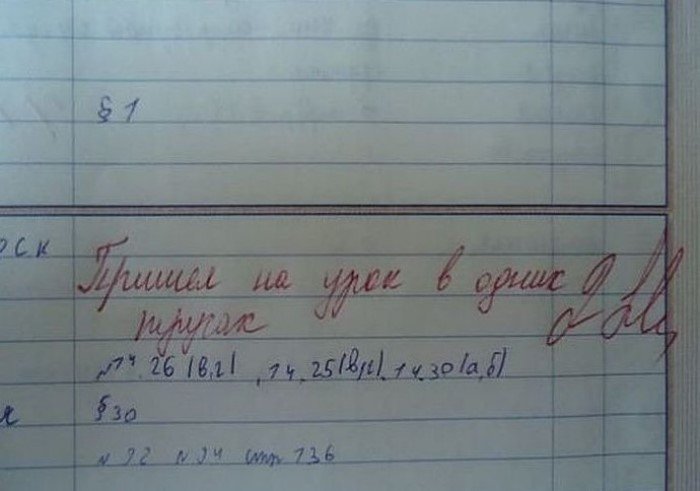 § 1
оск
Пришел на урок в одних 2
трусах
№14.26 (в,г), 14.25(в,г), 14.30(а,б)
я §30
№ 92 № 94 стр 136